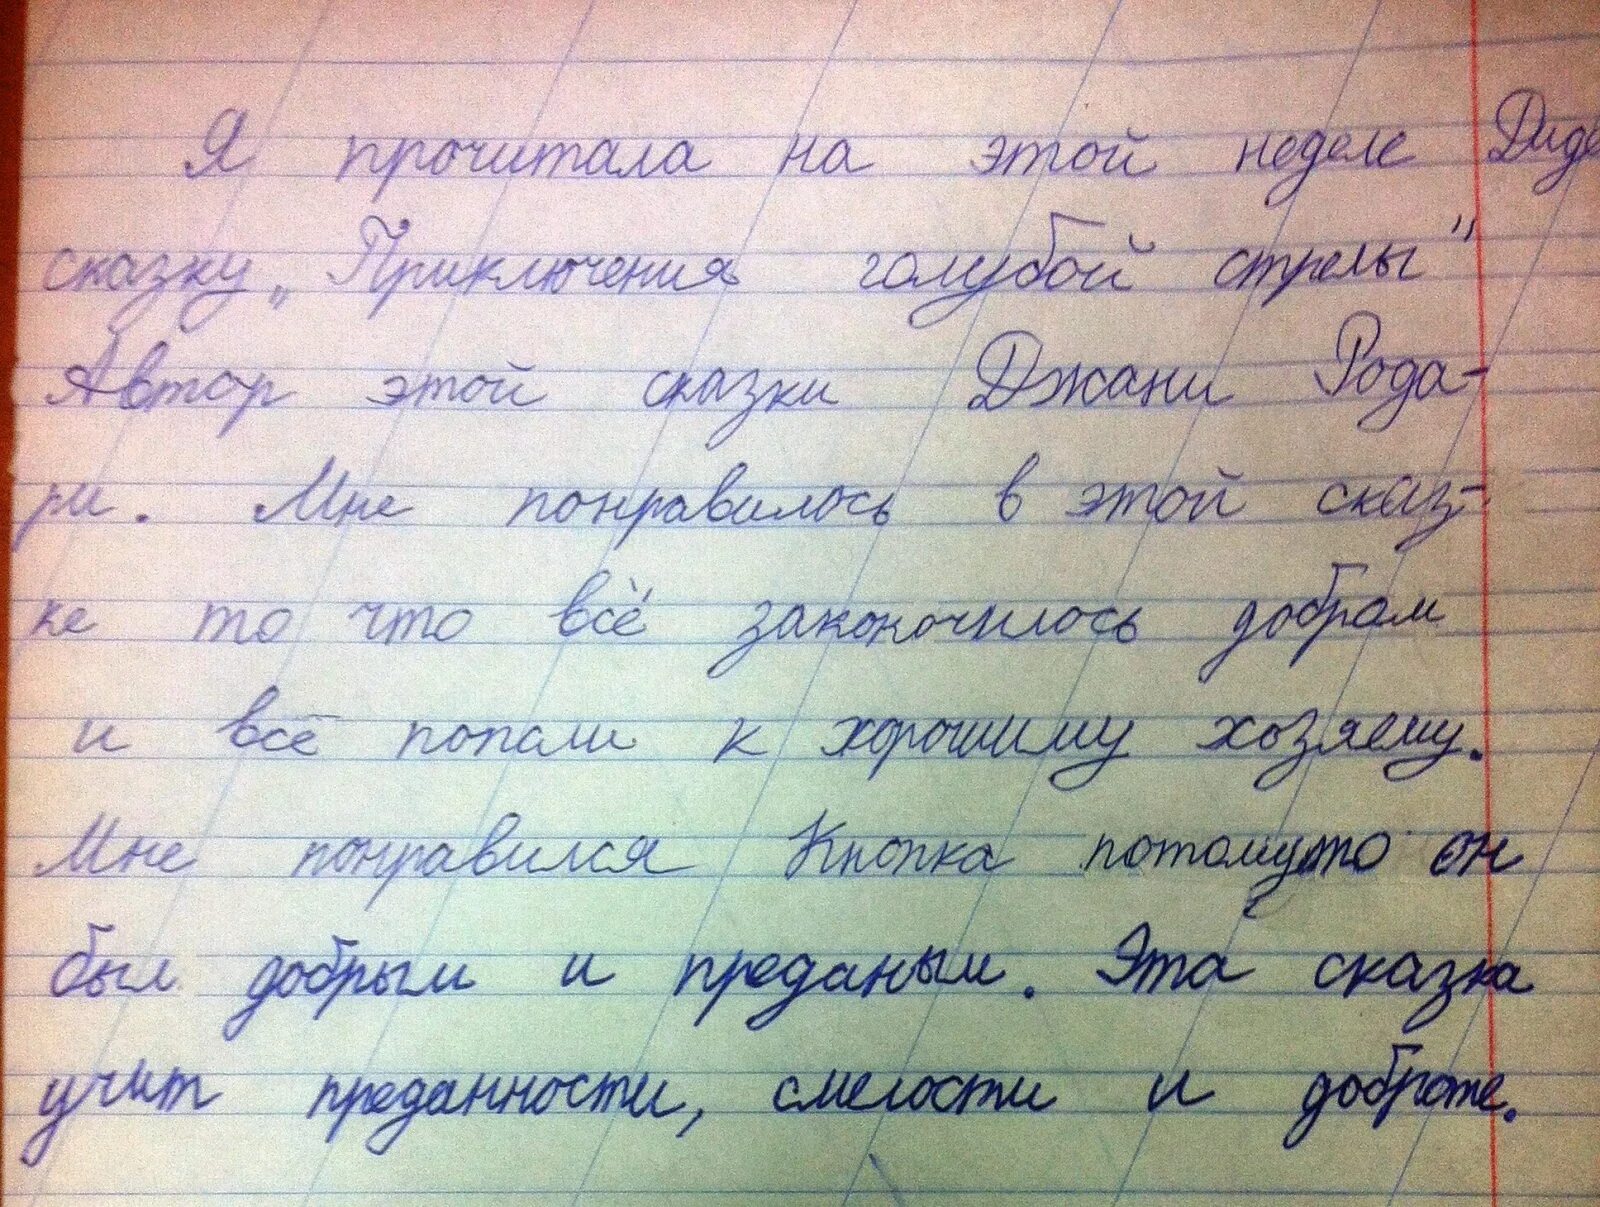 Я прочитала на этой неделе
сказку „Приключения голубой стрелы"
Автор этой сказки Джани Рода-
ри. Мне понравилось в этой сказ-
ке то что всё законочилось добрам
и всё попали к хорошиму хозяему.
Мне понравился Кнопка потомучто он
был добрым и преданым. Эта сказка
учит преданности, смелости и доброте.